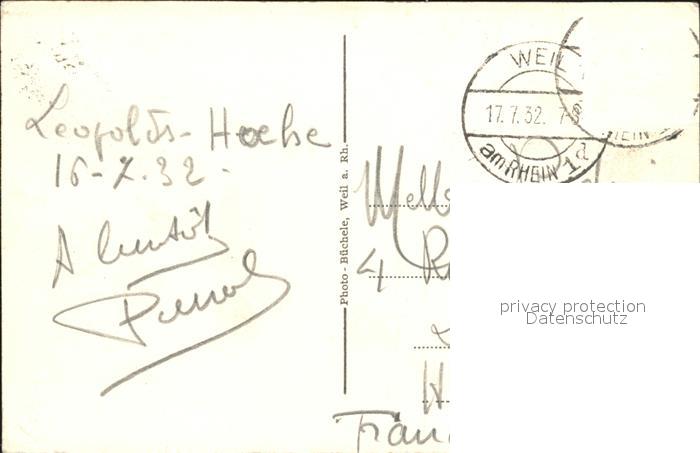 Leopolds-Hoehe
16-7.32.
A bientôt
Photo-Büchele, Weil a. Rh.
WEIL
17.7.32. 7-8
am RHEIN 1d
RHEIN
Melle
4 R
H
Fran
privacy protection
Datenschutz